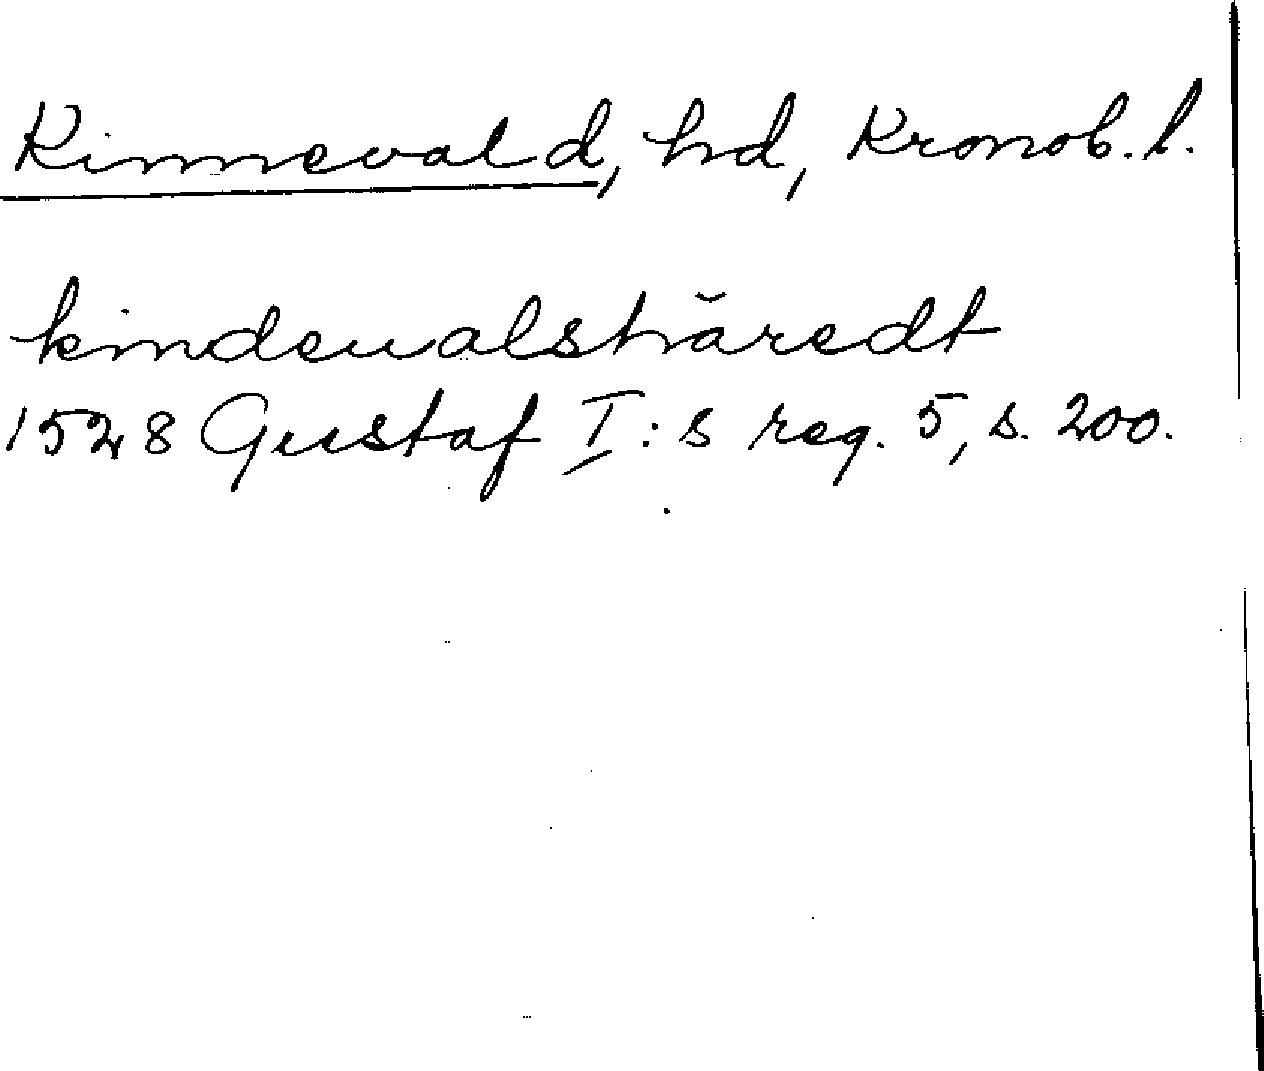 Kinnevald, hd, Kronob. l.
kindeualshäredt
1528 Gustaf I:s reg. 5, s. 200.